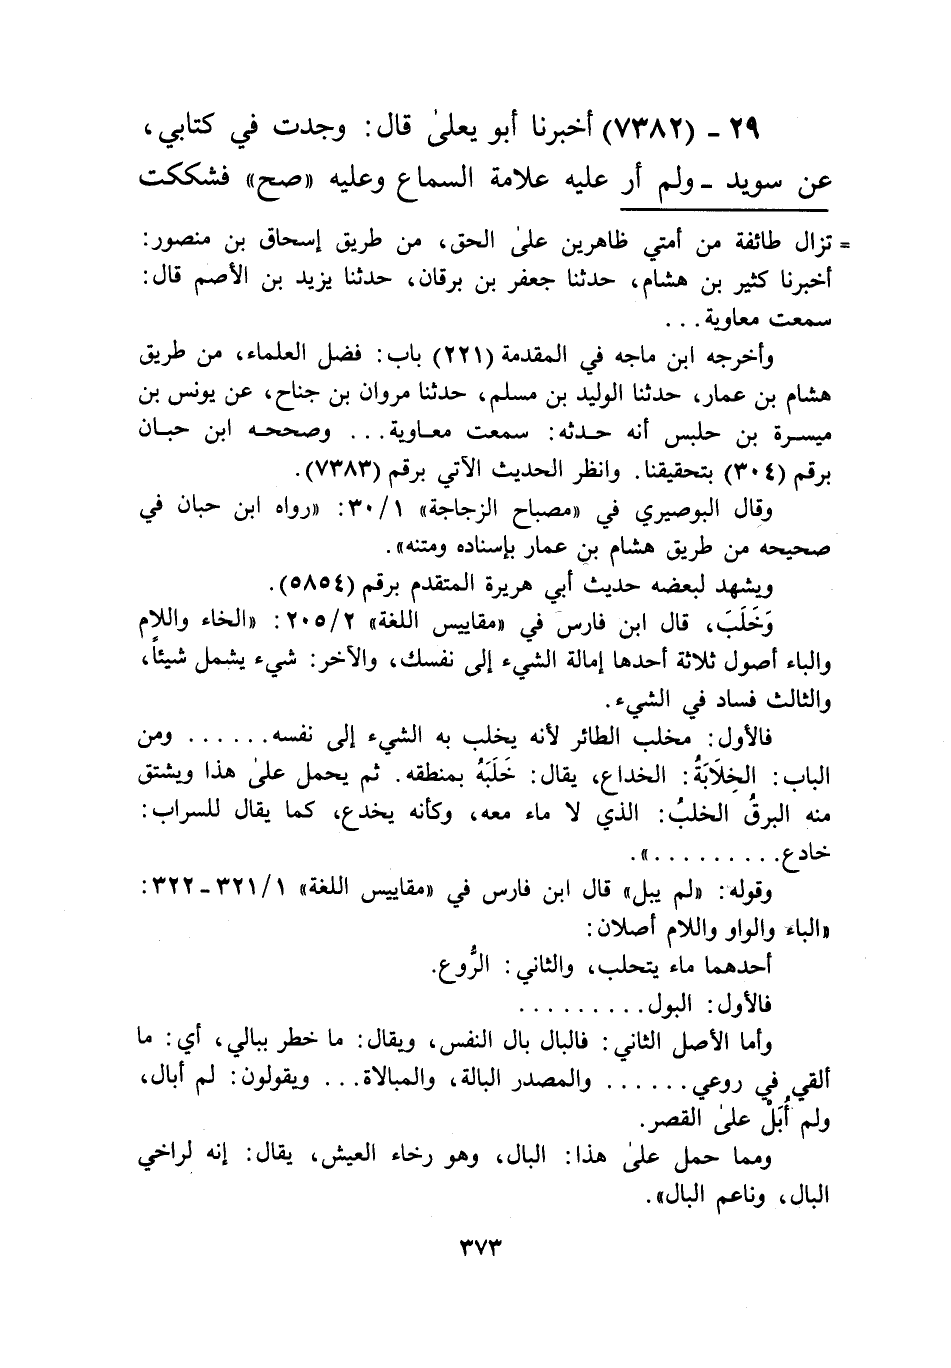 ٢٩ - (٧٣٨٢) أخبرنا أبو يعلىٰ قال: وجدت في كتابي،
عن سويد - ولم أر عليه علامة السماع وعليه «صح» فشككت
= تزال طائفة من أمتي ظاهرين علىٰ الحق، من طريق إسحاق بن منصور:
أخبرنا كثير بن هشام، حدثنا جعفر بن برقان، حدثنا يزيد بن الأصم قال:
سمعت معاوية...
وأخرجه ابن ماجه في المقدمة (٢٢١) باب: فضل العلماء، من طريق
هشام بن عمار، حدثنا الوليد بن مسلم، حدثنا مروان بن جناح، عن يونس بن
ميسرة بن حلبس أنه حدثه: سمعت معاوية... وصححه ابن حبان
برقم (٣٠٤) بتحقيقنا. وانظر الحديث الآتي برقم (٧٣٨٣).
وقال البوصيري في «مصباح الزجاجة» ٣٠/١: «رواه ابن حبان في
صحيحه من طريق هشام بن عمار بإسناده ومتنه».
ويشهد لبعضه حديث أبي هريرة المتقدم برقم (٥٨٥٤).
وَخَلَبَ، قال ابن فارس في «مقاييس اللغة» ٢٠٥/٢: «الخاء واللام
والباء أصول ثلاثة أحدها إمالة الشيء إلى نفسك، والآخر: شيء يشمل شيئاً،
والثالث فساد في الشيء.
فالأول: مخلب الطائر لأنه يخلب به الشيء إلى نفسه...... ومن
الباب: الخِلَابَةُ: الخداع، يقال: خَلَبَهُ بمنطقه. ثم يحمل علىٰ هذا ويشتق
منه البرقُ الخلبُ: الذي لا ماء معه، وكأنه يخدع، كما يقال للسراب:
خادع.........».
وقوله: «لم يبل» قال ابن فارس في «مقاييس اللغة» ٣٢١/١ - ٣٢٢:
«الباء والواو واللام أصلان:
أحدهما ماء يتحلب، والثاني: الرُّوع.
فالأول: البول.........
وأما الأصل الثاني: فالبال بال النفس، ويقال: ما خطر ببالي، أي: ما
ألقي في روعي...... والمصدر البالة، والمبالاة... ويقولون: لم أبال،
ولم أُبَلْ علىٰ القصر.
ومما حمل علىٰ هذا: البال، وهو رخاء العيش، يقال: إنه لراخي
البال، وناعم البال».
٣٧٣